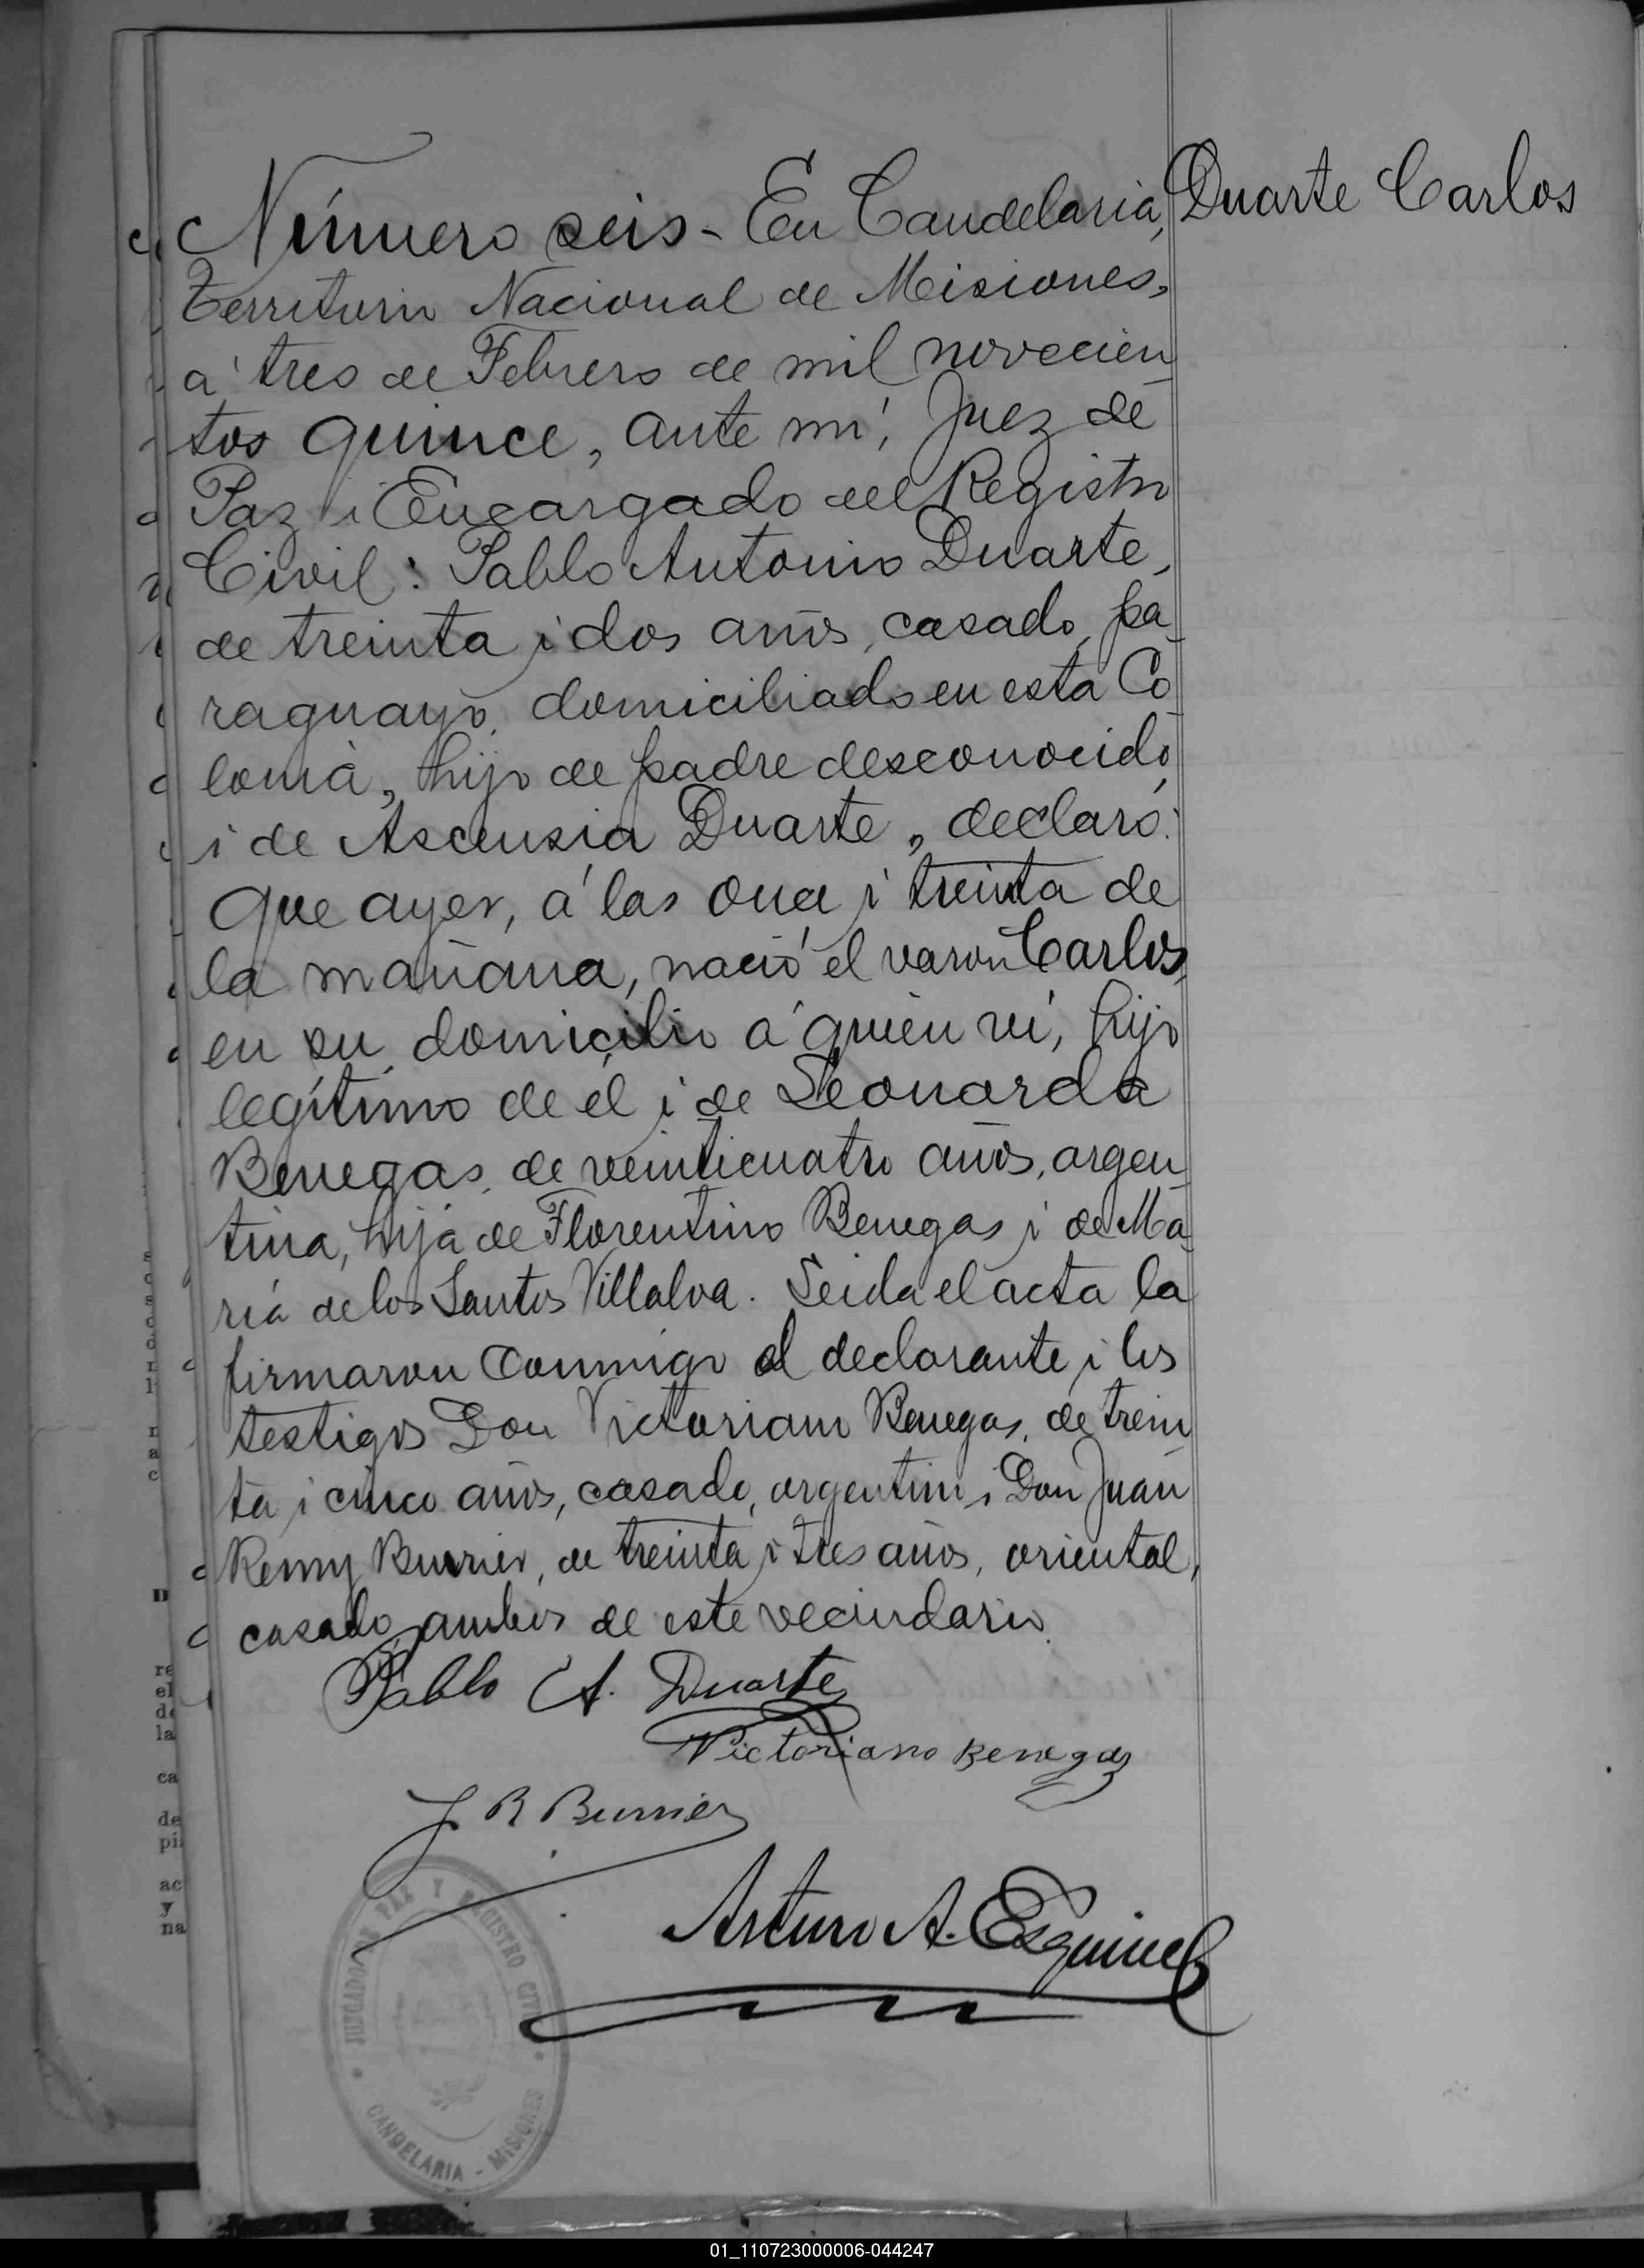 Número seis - En Candelaria, Duarte Carlos
Territorio Nacional de Misiones,
a' tres de Febrero de mil novecien
tos quince, ante mí, Juez de
Paz i Encargado del Registro
Civil: Pablo Antonio Duarte,
de treinta i dos años, casado, pa
raguayo, domiciliado en esta Co
lonia, hijo de padre desconocido
i de Ascensia Duarte, declaró:
Que ayer, á las once i treinta de
la mañana, nació el varón Carlos,
en su domicilio á quien ví, hijo
legítimo de él i de Leonarda
Benegas, de veinticuatro años, argen
tina, hija de Florentino Benegas i de Ma
ría de los Santos Villalva. Leida el acta la
firmaron conmigo el declarante i los
testigos Don Victoriano Benegas, de trein
ta i cinco años, casado, argentino i Don Juan
Remy Burrier, de treinta i tres años, oriental,
casado, ambos de este vecindario.
Pablo A. Duarte
Victoriano Benegas
J R Burrier
Arturo A. Esquivel
JUZGADO DE PAZ Y REGISTRO CIVIL
CANDELARIA - MISIONES
re
el
de
la
ca
de
pi
ac
y
na
01_110723000006-044247